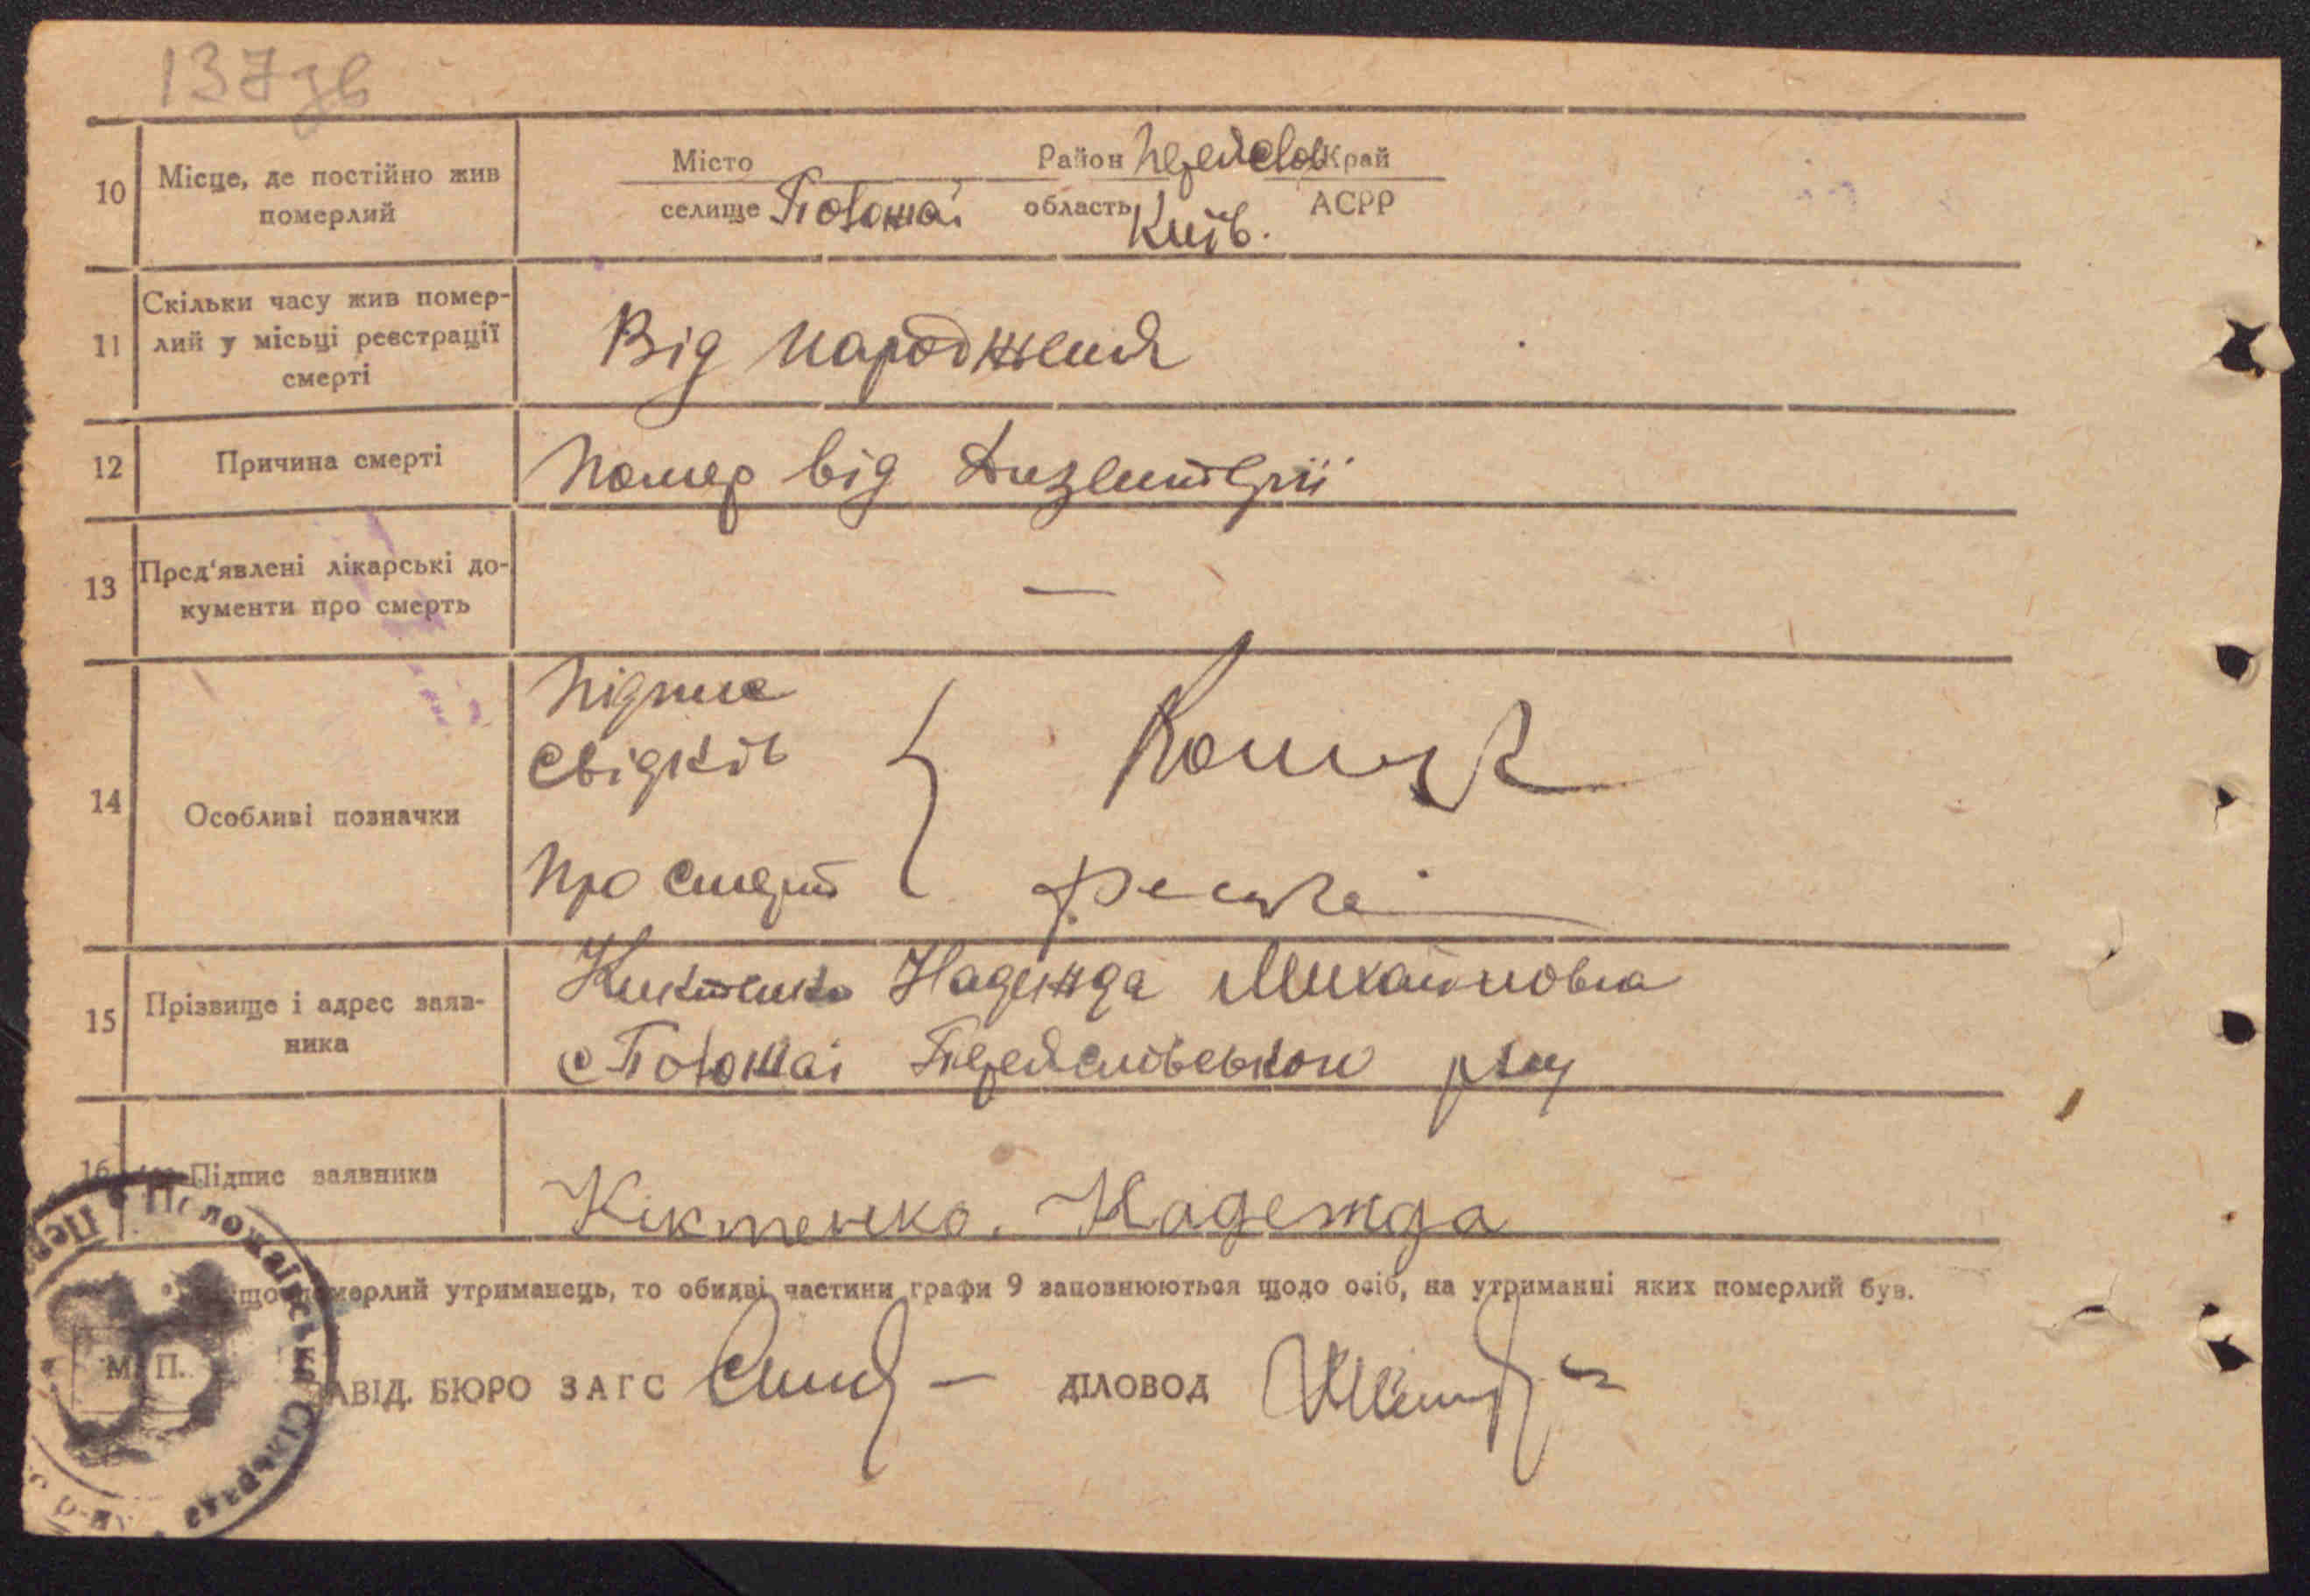 137зв
10 Місце, де постійно жив
померлий
Місто Район Переясловс Край
селище Положаї область Київ. АСРР
11 Скільки часу жив помер-
лий у місьці реєстрації
смерті
Від народження
12 Причина смерті Помер від Дизентерії
13 Пред'явлені лікарські до-
кументи про смерть —
14 Особливі позначки
Підписе
свідків
Про смерт
15 Прізвище і адрес заяв-
ника
Кіктенко Надежда Михайловна
с Положаі Переяславського р-ну
16 Підпис заявника Кіктенко. Надежда
померлий утриманець, то обидві частини графи 9 заповнюються щодо осіб, на утриманні яких померлий був.
М. П. ЗАВІД. БЮРО ЗАГС ДІЛОВОД
Положаївська Сільрада